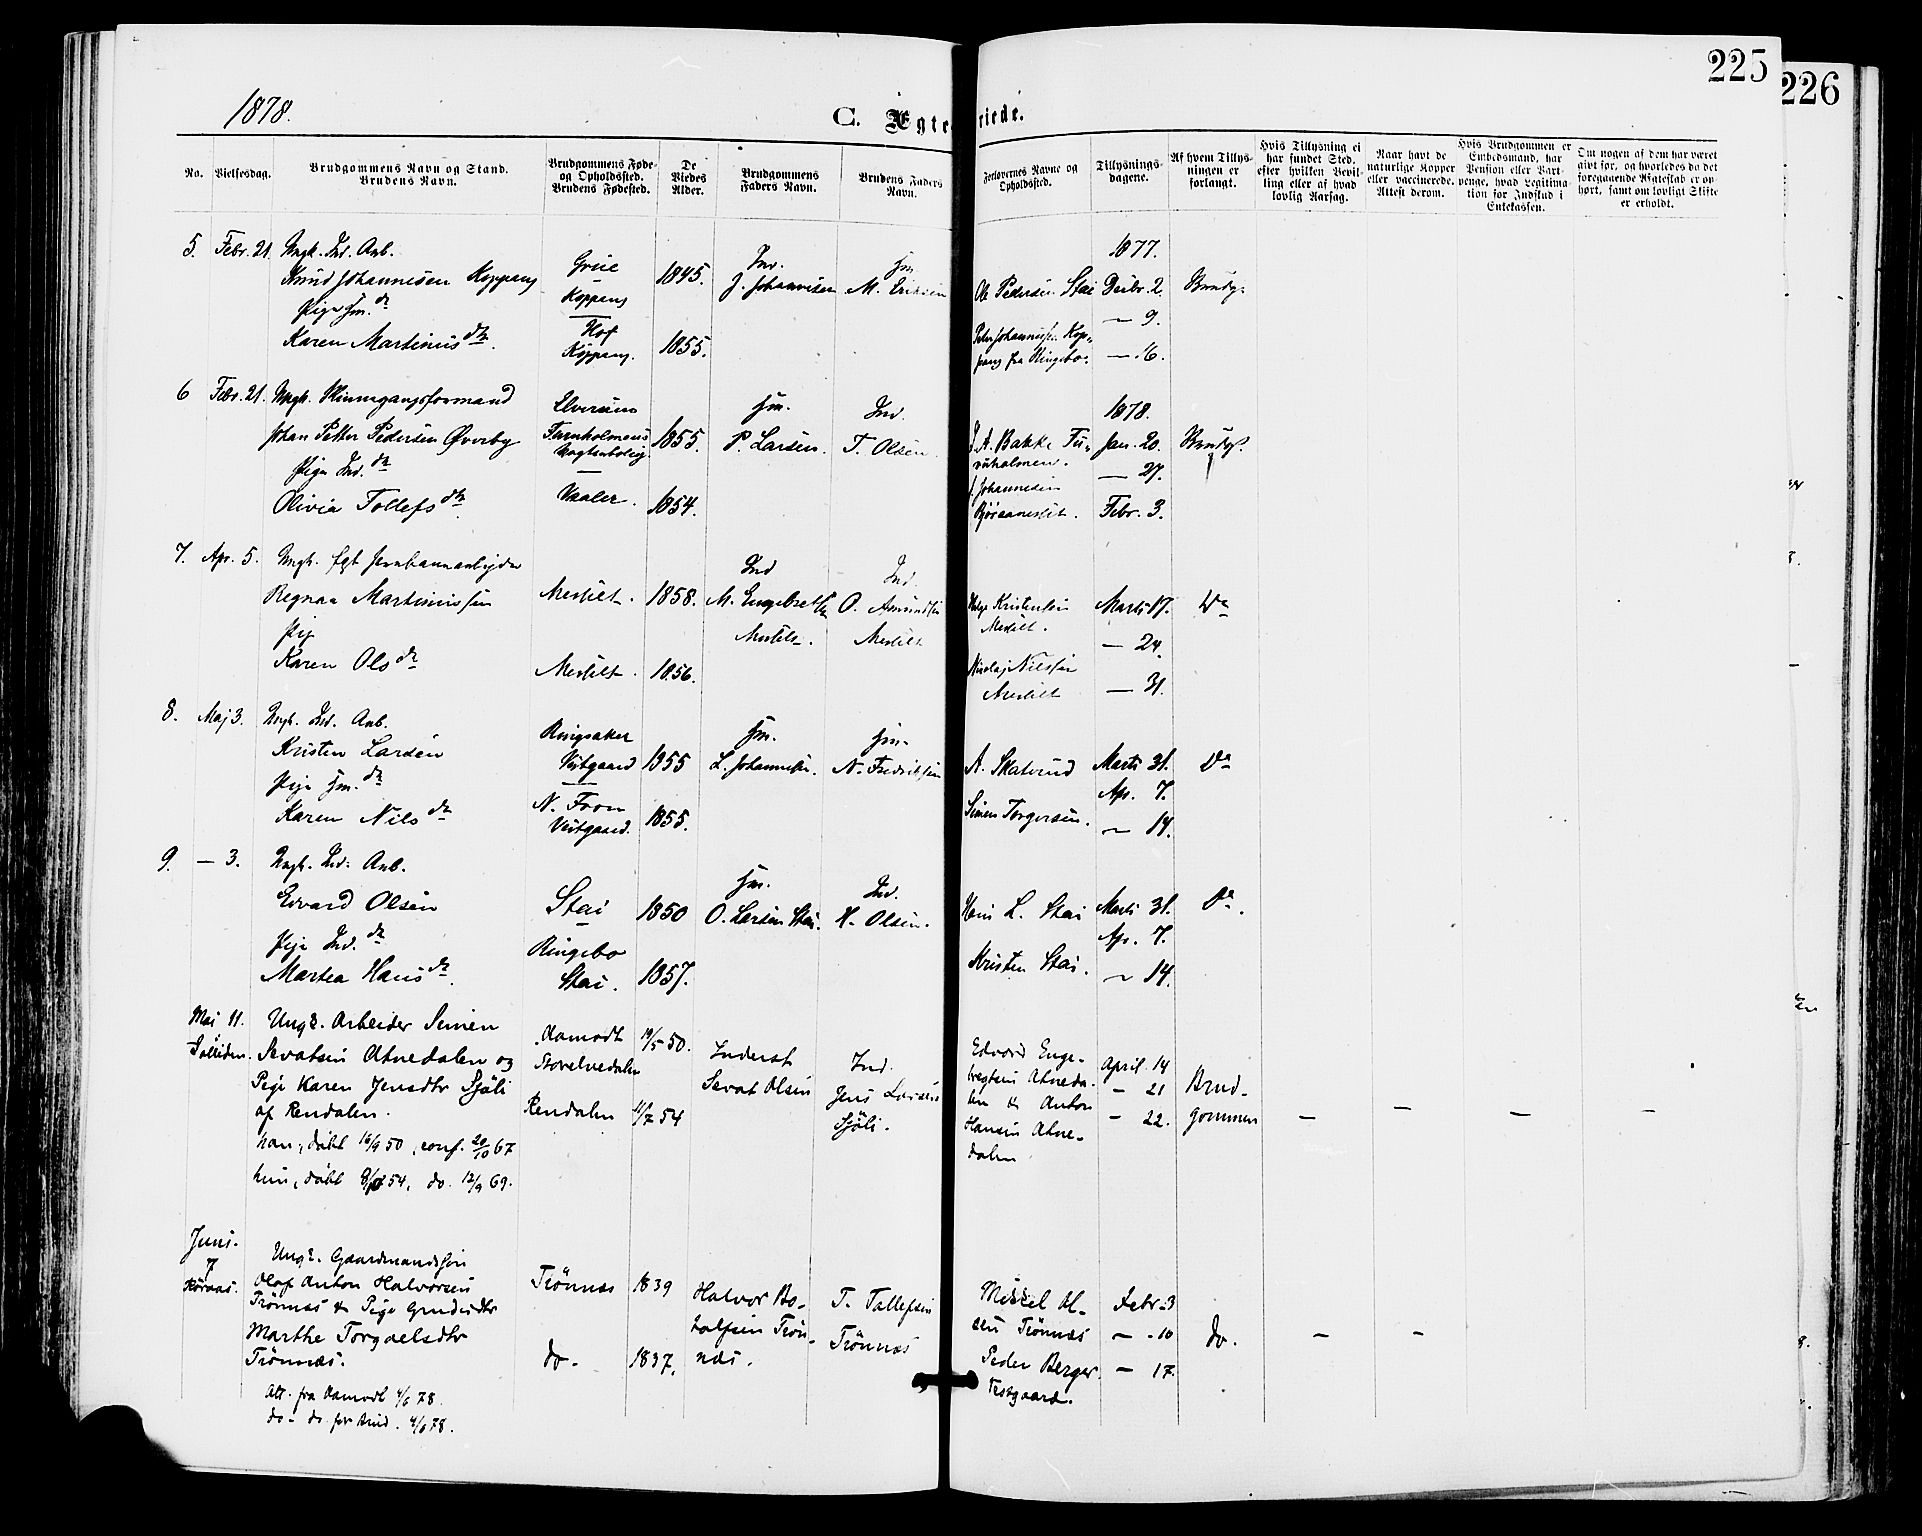 225
226
1878.
C. Ægte
riede.
No.
Vielsesdag.
Brudgommens Navn og Stand.
Brudens Navn.
Brudgommens Føde-
og Opholdssted.
Brudens Fødested.
De
Viedes
Alder.
Brudgommens
Faders Navn.
Brudens Faders
Navn.
Forlovernes Navne og
Opholdssted.
Tillysnings-
dagene.
Af hvem Tillys-
ningen er
forlangt.
Hvis Tillysning ei
har fundet Sted,
efter hvilken Bevil-
ling eller af hvad
lovlig Aarsag.
Naar havt de
naturlige Kopper
eller vaccinerede.
Attest derom.
Hvis Brudgommen er
Embedsmand, har
Pension eller Vart-
penge, hvad Legitima-
tion for Indskud i
Enkekassen.
Om nogen af dem har været
gift før, og hvorledes da det
foregaaende Ægteskab er op-
hørt, samt om lovligt Skifte
er erholdt.
5. Febr. 21 Ungk. Ind. Arb.
Knud Johannesen Koppang
Pige Hm. dr
Karen Martinus dtr.
Grue
Koppang
Hof
Koppang.
1845.
1855.
Inv.
J. Johannesen
Hm
M. Eriksen
Ole Pedersen Stai
Peter Johannesen Kop-
pang fra Ringebo.
1877.
Decbr. 2.
— 9.
— 16.
Brudg.
6 Febr. 21. Ungk. Skinnegangsformand
Johan Petter Pedersen Øverby
Pige Ind. dr
Olivia Tollefs dtr.
Elverum
Furuholmens
Vogterbolig.
Vaaler.
1855.
1854.
Hm.
P. Larsen.
Ind.
T. Olsen.
J. A. Bakke Fu-
ruholmen.
J. Johannesen
1878.
Jan. 20.
— 27.
Febr. 3.
Brudg.
7. Apr. 5. Ungk. Jernbanearbejder
Regnar Martinussen
Pig
Karen Ols dr
Mesilt.
Mesilt.
1858.
1856.
Ind
M. Engebretsen
Mesilt.
Ind.
O. Amundsen
Mesilt
Helge Kristensen
Mesilt.
Nicolaj Nilssen
Mesilt
Marts 17.
— 24.
— 31.
Do
8. Maj 3. Ungk. Ind. Arb.
Kristen Larsen
Pige Hm. dr
Karen Nils dr
Ringsaker
Vestgaard
N. Fron
Vestgaard.
1855
1855.
Hm.
L. Johannesen.
Hm.
N. Fredriksen
A. Skaterud
Simen Torgersen.
Marts 31.
Ap. 7.
— 14.
Do
9. — 3. Ungk. Ind. Arb.
Edvard Olsen
Pige Ind. dr
Martea Hans dr.
Stai
Ringebo
Stai.
1850
1857.
Hm.
O. Larsen Stai.
Ind.
H. Olsen.
Hans L. Stai
Kristen Stai.
Marts 31.
Ap. 7.
— 14.
Do.
Mai 11.
Solliden.
Ungk. Arbeider Simen
Sevatsen Atnedalen og
Pige Karen Jensdtr Sjøli
af Rendalen.
han, døbt 16/9 50, conf. 20/10 67
hun, døbt 8/10 54, do. 12/9 69.
Aamodt
Storelvedalen
Rendalen
19/5 50.
11/7 54
Inderst
Sevat Olsen
Ind.
Jens Larsen
Sjøli.
Edvard Enge-
bregtsen Atneda-
len & Anton
Hansen Atne-
dalen
April. 14
— 21
— 22.
Brud-
gommen
— — — —
Juni
7
Ungk. Gaardmandssøn
Olaf Anton Halvorsen
Trønnæs & Pige Grudedtr
Marthe Torgaelsdtr
Trønnæs.
Att. fra Aamodt 4/6 78.
do - do for Brud. 4/6 78.
Trønnæs
do -
1839
1837.
Halvor Bo-
tolfsen Trøn-
næs.
T. Tollefsen
Trønnæs
Mikkel Ol-
sen Trønnæs
Peder Berger
Testgaard.
Febr. 3
— 10
— 17.
do.
— —